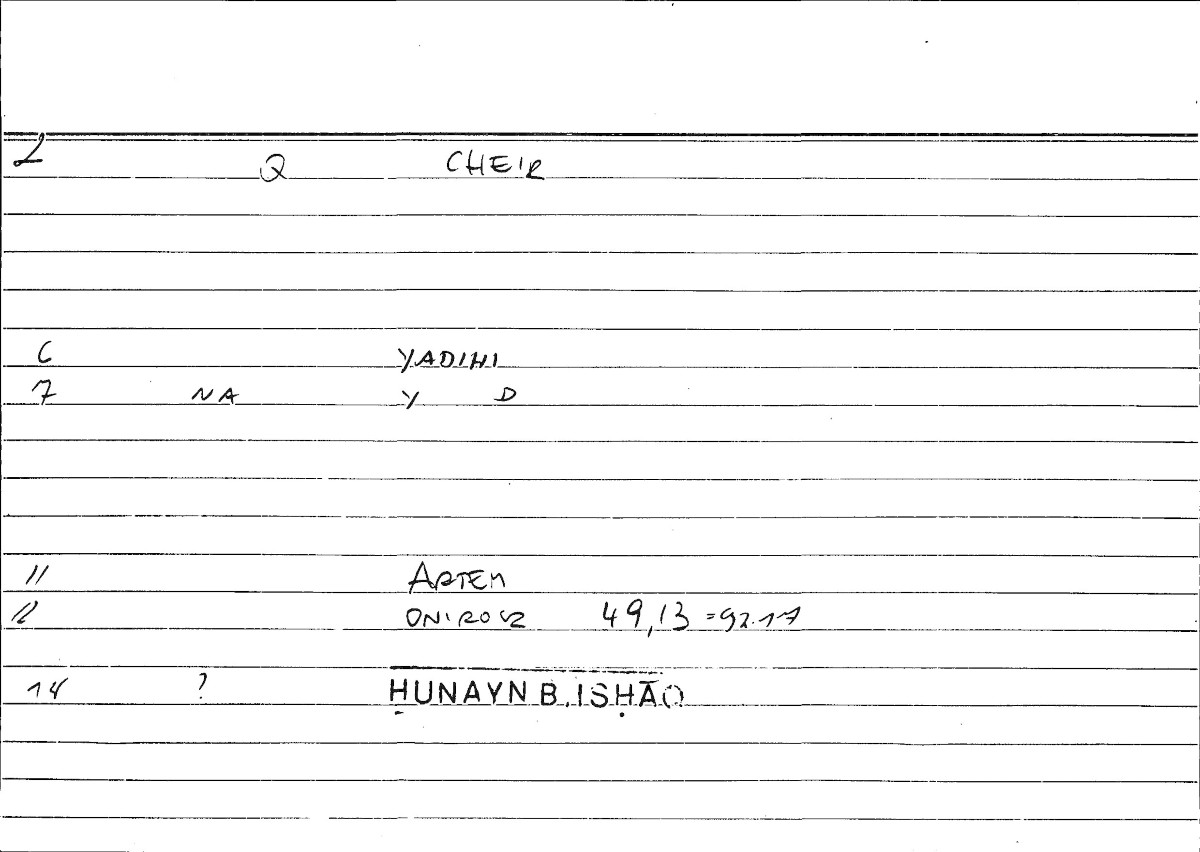 2 Q CHEIR
6 YADIHI
7 NA Y D
11 ARTEM
12 ONIROCR 49,13 =92.17
14 ? ḤUNAYN B. ISḤĀQ